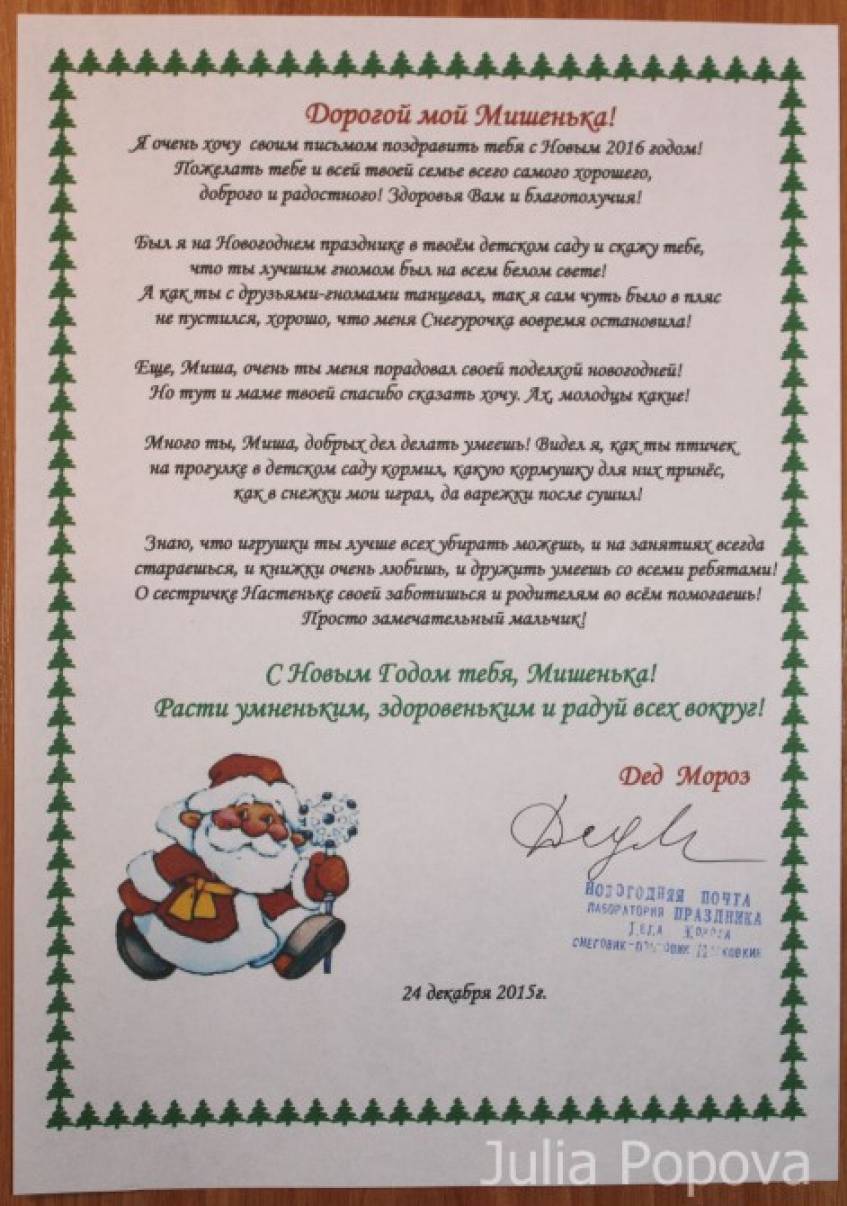 Дорогой мой Мишенька!
Я очень хочу своим письмом поздравить тебя с Новым 2016 годом!
Пожелать тебе и всей твоей семье всего самого хорошего,
доброго и радостного! Здоровья Вам и благополучия!
Был я на Новогоднем празднике в твоём детском саду и скажу тебе,
что ты лучшим гномом был на всем белом свете!
А как ты с друзьями-гномами танцевал, так я сам чуть было в пляс
не пустился, хорошо, что меня Снегурочка вовремя остановила!
Еще, Миша, очень ты меня порадовал своей поделкой новогодней!
Но тут и маме твоей спасибо сказать хочу. Ах, молодцы какие!
Много ты, Миша, добрых дел делать умеешь! Видел я, как ты птичек
на прогулке в детском саду кормил, какую кормушку для них принёс,
как в снежки мои играл, да варежки после сушил!
Знаю, что игрушки ты лучше всех убирать можешь, и на занятиях всегда
стараешься, и книжки очень любишь, и дружить умеешь со всеми ребятами!
О сестричке Настеньке своей заботишься и родителям во всём помогаешь!
Просто замечательный мальчик!
С Новым Годом тебя, Мишенька!
Расти умненьким, здоровеньким и радуй всех вокруг!
Дед Мороз
ДедМ
НОВОГОДНЯЯ ПОЧТА
ЛАБОРАТОРИЯ ПРАЗДНИКА
СНЕГОВИК-
24 декабря 2015г.
Julia Popova